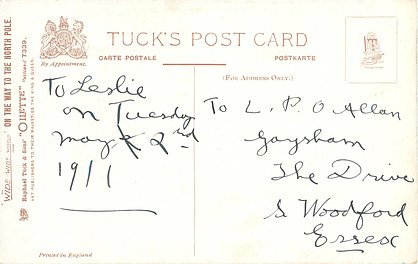 "WIDE-WIDE-WORLD" ON THE WAY TO THE NORTH POLE.
Raphael Tuck & Sons' "OILETTE" Postcard 7339.
ART PUBLISHERS TO THEIR MAJESTIES THE KING & QUEEN.
By Appointment.
TUCK'S POST CARD
CARTE POSTALE
POSTKARTE
(FOR ADDRESS ONLY.)
To Leslie
on Tuesday
May 2nd
1911
To L. P. O Allan
Gaysham
The Drive
S Woodford
Essex
Printed in England